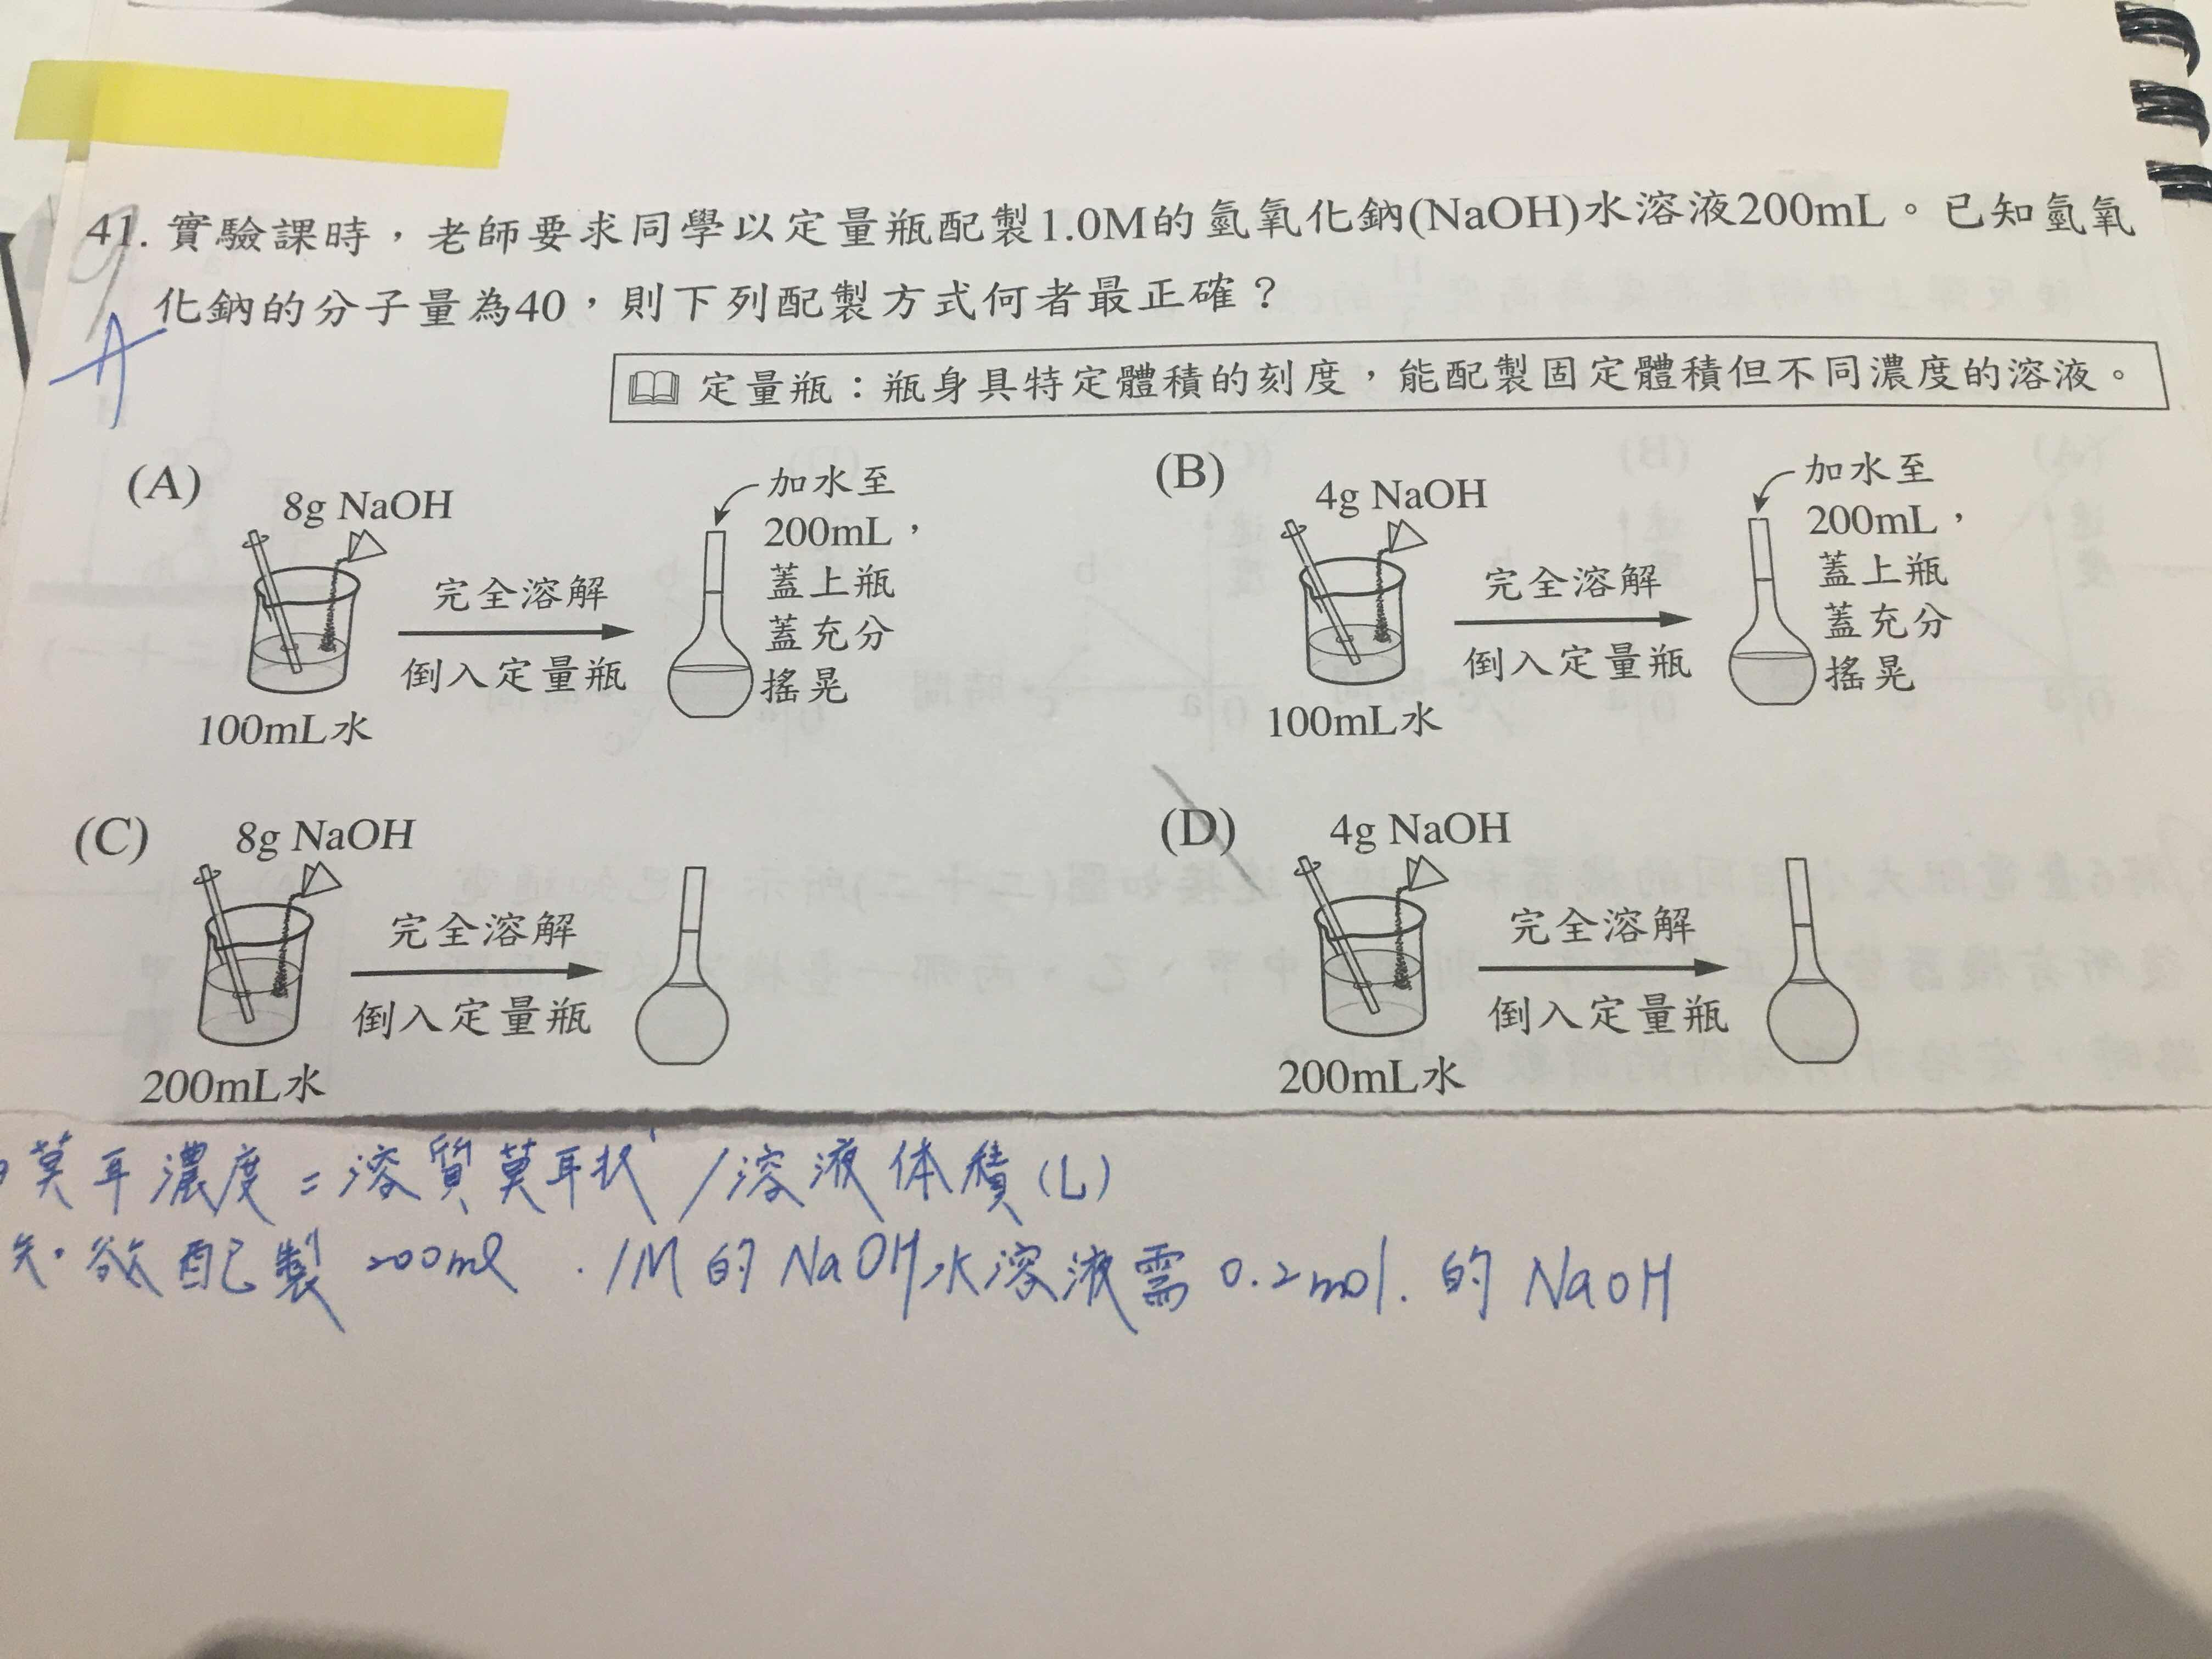 41. 實驗課時，老師要求同學以定量瓶配製1.0M的氫氧化鈉(NaOH)水溶液200mL。已知氫氧
化鈉的分子量為40，則下列配製方式何者最正確？
A
定量瓶：瓶身具特定體積的刻度，能配製固定體積但不同濃度的溶液。
(A)
8g NaOH
100mL水
完全溶解
倒入定量瓶
加水至
200mL，
蓋上瓶
蓋充分
搖晃
(B)
4g NaOH
100mL水
完全溶解
倒入定量瓶
加水至
200mL，
蓋上瓶
蓋充分
搖晃
(C)
8g NaOH
200mL水
完全溶解
倒入定量瓶
(D)
4g NaOH
200mL水
完全溶解
倒入定量瓶
莫耳濃度=溶質莫耳 /溶液体積(L)
欲配製 200ml . 1M 的 NaOH水溶液需 0.2mol. 的 NaOH